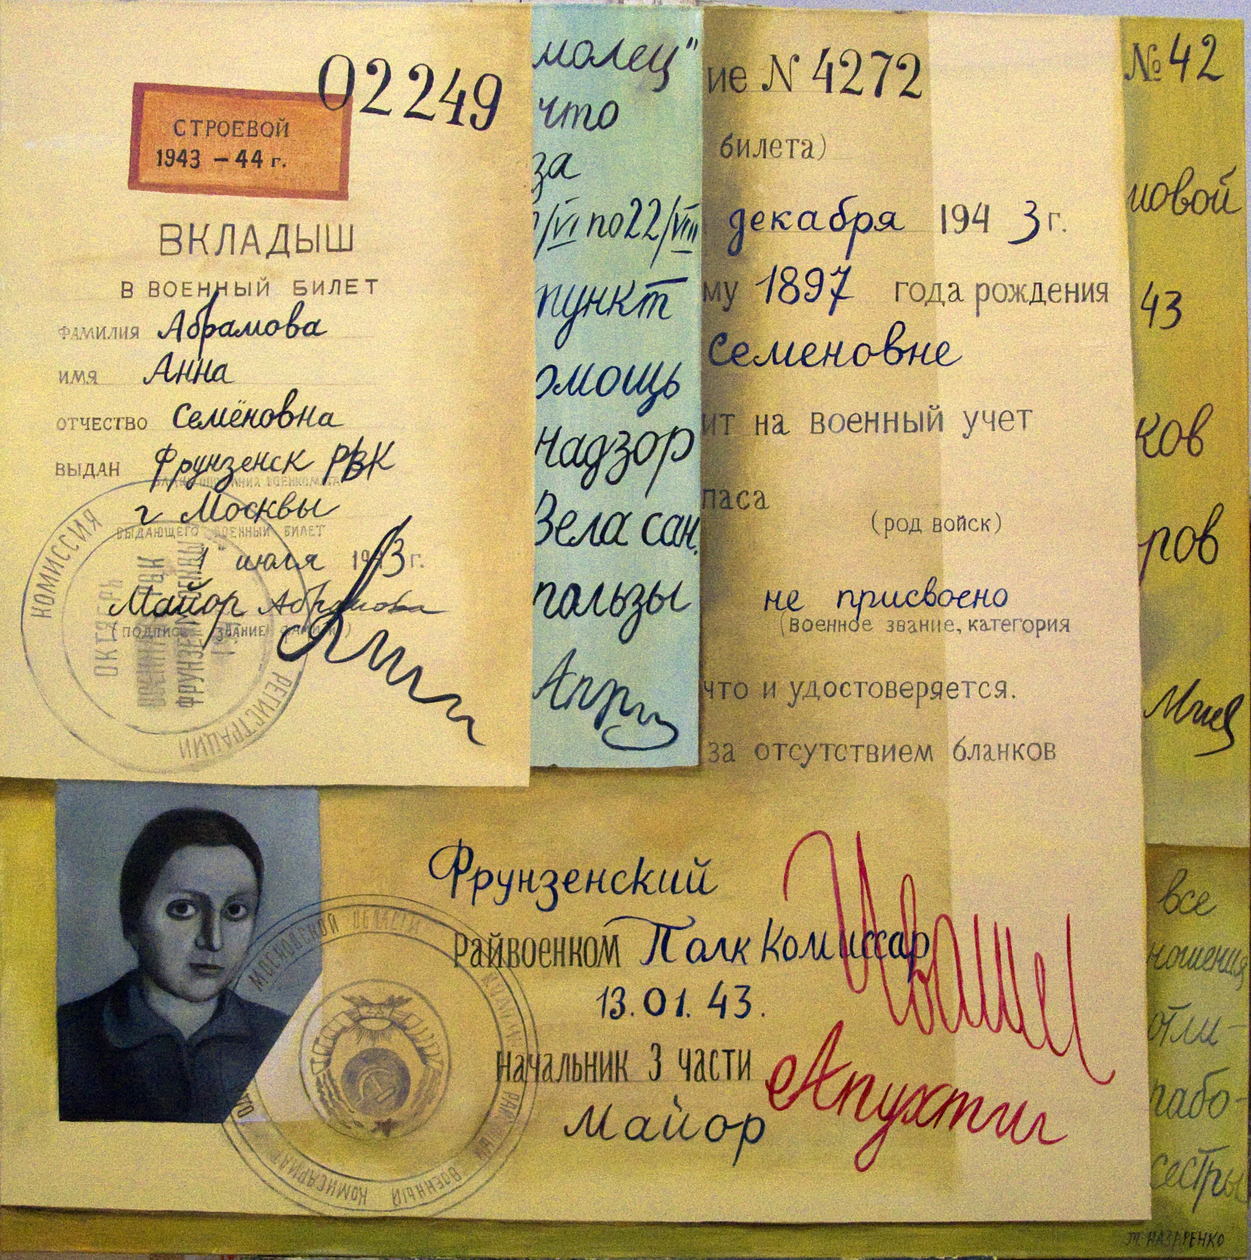 02249
СТРОЕВОЙ
1943 – 44 г.
ВКЛАДЫШ
В ВОЕННЫЙ БИЛЕТ
ФАМИЛИЯ Абрамова
ИМЯ Анна
ОТЧЕСТВО Семёновна
ВЫДАН Фрунзенск РВК
г Москвы
ВЫДАЮЩЕГО ВОЕННЫЙ БИЛЕТ
1 июля 1943 г.
Майор Абрамова
(ПОДПИСЬ, ЗВАНИЕ
КОМИССИЯ
РЕГИСТРАЦИИ
молец"
что
за
/VI по 22/VIII
пункт
омощь
надзор
Вела сан.
пальзы
ие N 4272
билета)
декабря 1943 г.
му 1897 года рождения
Семеновне
ит на военный учет
паса
(род войск)
не присвоено
(военное звание, категория
что и удостоверяется.
за отсутствием бланков
Фрунзенский
Райвоенком Полк Комиссар
13.01.43.
Начальник 3 части
Майор Апухтин
МОСКОВСКОЙ ОБЛАСТИ
ВОЕННЫЙ КОМИСАРИАТ
№ 42
новой
43
ков
ров
все
ношения
отли-
рабо-
сестры
Т. НАЗАРЕНКО